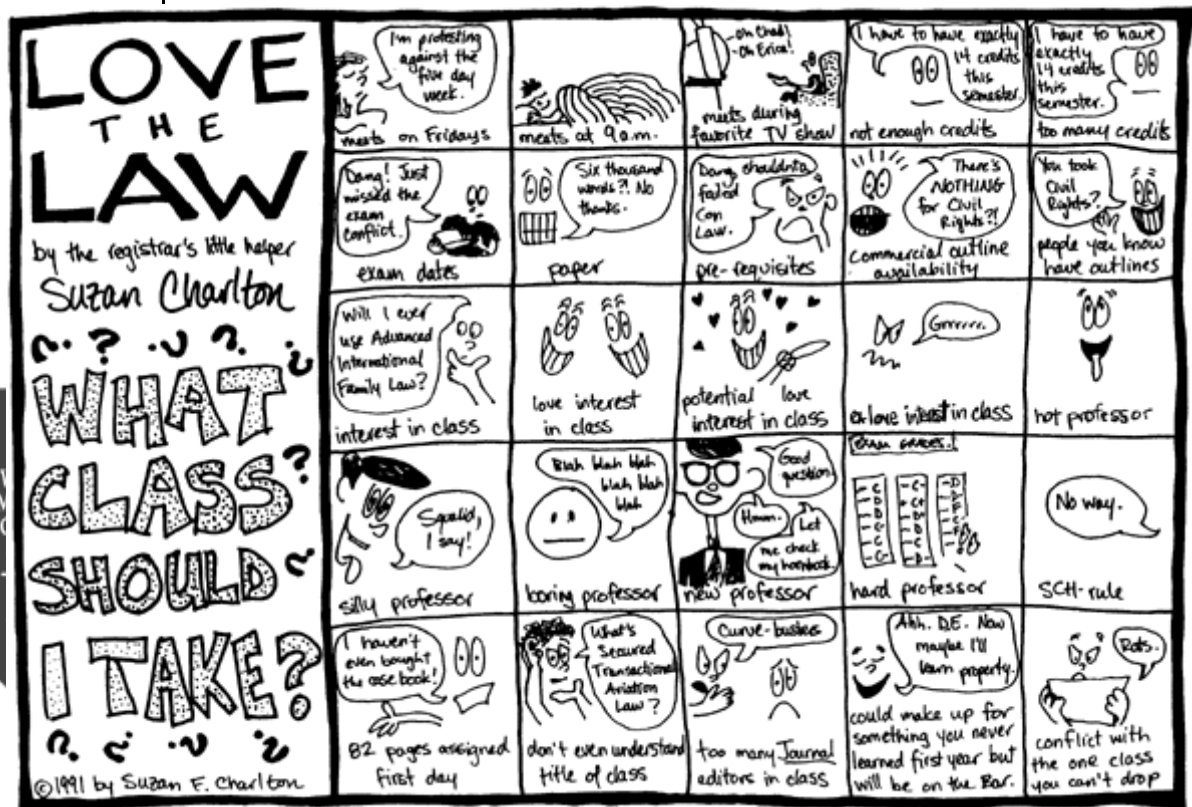 LOVE
THE
LAW
by the registrar's little helper
Suzan Charlton
WHAT
CLASS
SHOULD
I TAKE?
©1991 by Suzan F. Charlton
I'm protesting
against the
five day
week.
meets on Fridays
meets at 9 a.m.
Oh Chad!
Oh Erica!
meets during
favorite TV show
I have to have exactly
14 credits
this
semester.
not enough credits
I have to have
exactly
14 credits
this
semester.
too many credits
Dang! Just
missed the
exam
conflict.
exam dates
Six thousand
words?! No
thanks.
paper
Dang, shouldnta
failed
Con
Law.
pre-requisites
There's
NOTHING
for Civil
Rights?!
commercial outline
availability
You took
Civil
Rights?
people you know
have outlines
Will I ever
use Advanced
International
Family Law?
interest in class
love interest
in class
potential love
interest in class
Grrrrrr.
ex love interest in class
hot professor
Squalid,
I say!
silly professor
Blah blah blah
blah blah
blah
boring professor
Good
question.
Hmmm.
Let
me check
my hornbook.
new professor
EXAM GRADES!
hard professor
No way.
SCH-rule
I haven't
even bought
the case book!
82 pages assigned
first day
What's
Secured
Transactional
Aviation
Law?
don't even understand
title of class
Curve-busters
too many Journal
editors in class
Ahh. D.E. Now
maybe I'll
learn property.
could make up for
something you never
learned first year but
will be on the Bar.
Rats.
conflict with
the one class
you can't drop